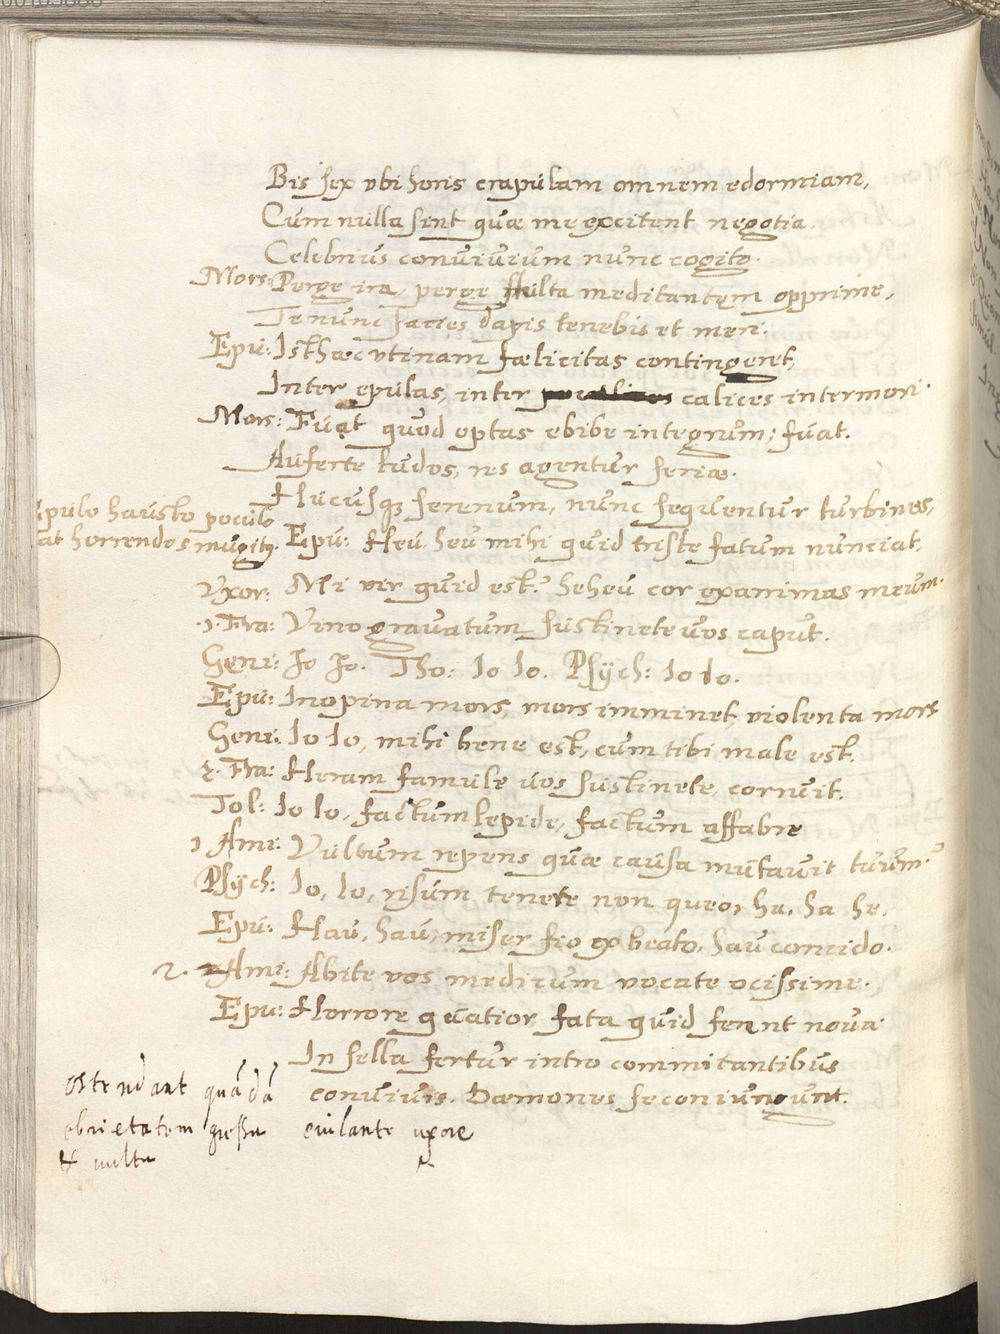 Bis sex vbi horis crapulam omnem edormiam,
Cum nulla sint quæ me excitent negotia
Celebrius conuiuium nunc cogito.
Mors: Perge ita, perge stulta meditantem opprime,
Te nunc saties dapis tenebis et meri.
Epu: Isthæc vtinam fælicitas contingeret,
Inter epulas, inter calices intermori.
Mors: Fuat quod optas ebibe integrum; fuat.
Auferte ludos, res agentur seriæ.
Hucusq; serenum, nunc sequentur turbines,
Epulo hausto poculo
dat horrendos mugitq.
Epu: Heu, heu mihi quid triste fatum nunciat,
Vxor: Mi vir quid est? heheu cor exanimas meum.
.1. Fra: Vino grauatum sustinete uos caput.
Geni: Io Io. Tho: Io Io. Psÿch: Io Io.
Epu: Inopina mors, mors imminet, violenta mors
Geni: Io Io, mihi bene est, cum tibi male est.
2. Fra: Heram famule uos sustinete, corruit.
Tol: Io Io, factum lepide, factum affabre
1 Ami: Vultum repens quæ causa mutauit tuum?
Psÿch: Io, Io, risum tenere non queo, ha, ha he.
Epu: Hau, hau, miser fio ex beato, hau concido.
2. Ami: Abite vos medicum vocate ocissime.
Epu: Horrore quatior, fata quid ferent noua.
In sella fertur intro commitantibus
conuiuis. Dæmones se coniungunt.
ostendant quãdã
ebrietatem gressu
& uultu
eiulante uxore